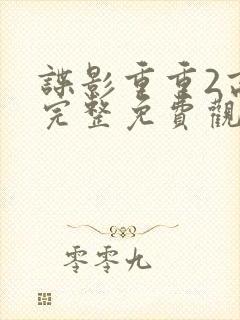 諜影重重2
完整免費觀
零零九